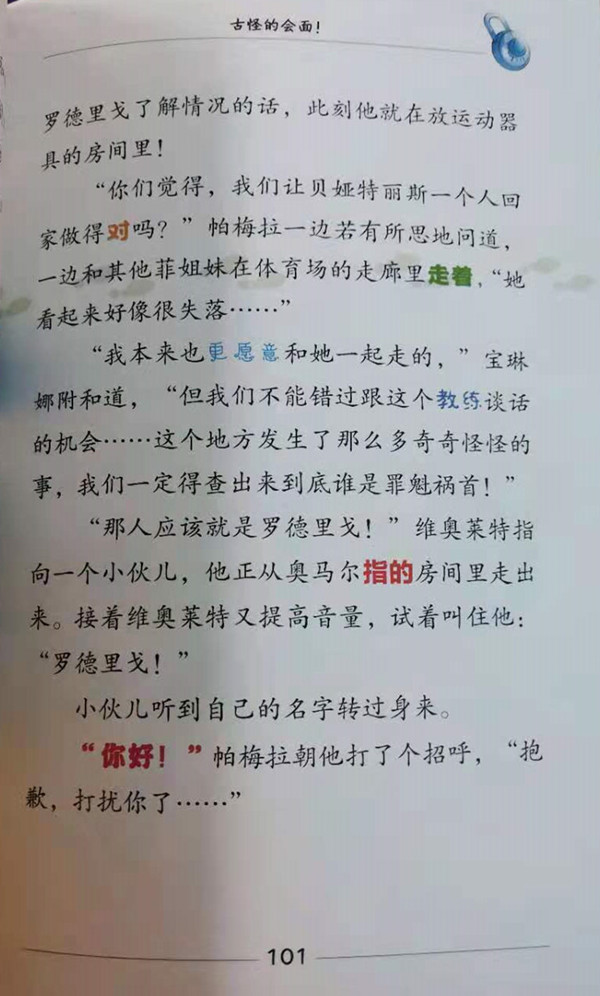 古怪的会面！
罗德里戈了解情况的话，此刻他就在放运动器
具的房间里！
“你们觉得，我们让贝娅特丽斯一个人回
家做得对吗？”帕梅拉一边若有所思地问道，
一边和其他菲姐妹在体育场的走廊里走着，“她
看起来好像很失落……”
“我本来也更愿意和她一起走的，”宝琳
娜附和道，“但我们不能错过跟这个教练谈话
的机会……这个地方发生了那么多奇奇怪怪的
事，我们一定得查出来到底谁是罪魁祸首！”
“那人应该就是罗德里戈！”维奥莱特指
向一个小伙儿，他正从奥马尔指的房间里走出
来。接着维奥莱特又提高音量，试着叫住他：
“罗德里戈！”
小伙儿听到自己的名字转过身来。
“你好！”帕梅拉朝他打了个招呼，“抱
歉，打扰你了……”
101